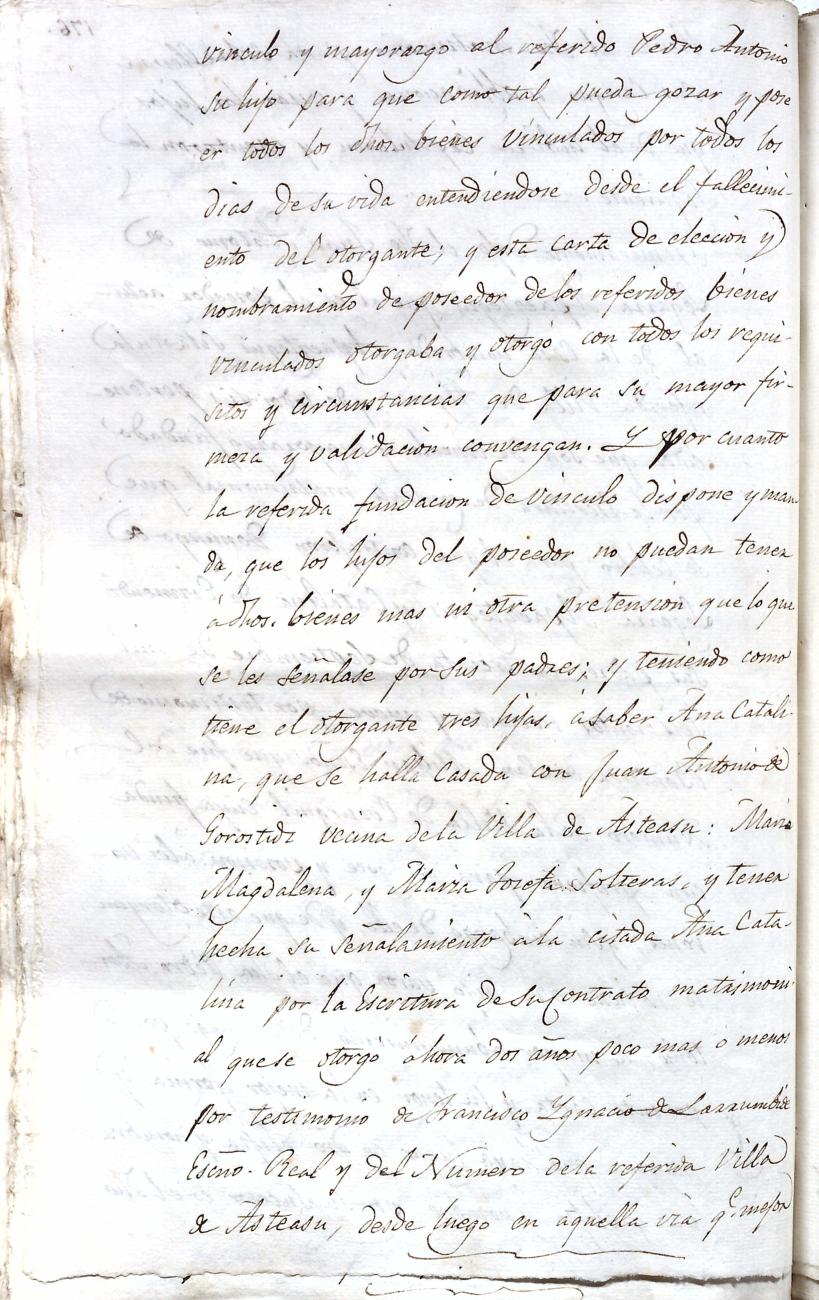 vinculo y mayorazgo al referido Pedro Antonio
su hijo para que como tal pueda gozar y pose
er todos los dhos bienes vinculados por todos los
dias de su vida entendiendose desde el fallecimi-
ento del otorgante; y esta carta de eleccion y
nombramiento de poseedor de los referidos bienes
vinculados otorgaba y otorgó con todos los requi-
sitos y circunstancias que para su mayor fir-
meza y validacion convengan. Y por cuanto
la referida fundacion de vinculo dispone y man-
da, que los hijos del poseedor no puedan tener
á dhos. bienes mas ni otra pretension que lo que
se les señalase por sus padres; y teniendo como
tiene el otorgante tres hijas, á saber Ana Catali-
na, que se halla casada con Juan Antonio de
Gorostidi vecina de la Villa de Asteasu: Maria
Magdalena, y Maria Josefa solteras, y tener
hecha su señalamiento à la citada Ana Cata-
lina por la Escritura de su Contrato matrimoni-
al que se otorgó ahora dos años poco mas ó menos
por testimonio de Francisco Ygnacio de Larrumbide
Escño. Real y del Numero de la referida Villa
de Asteasu, desde luego en aquella via q.e mejor